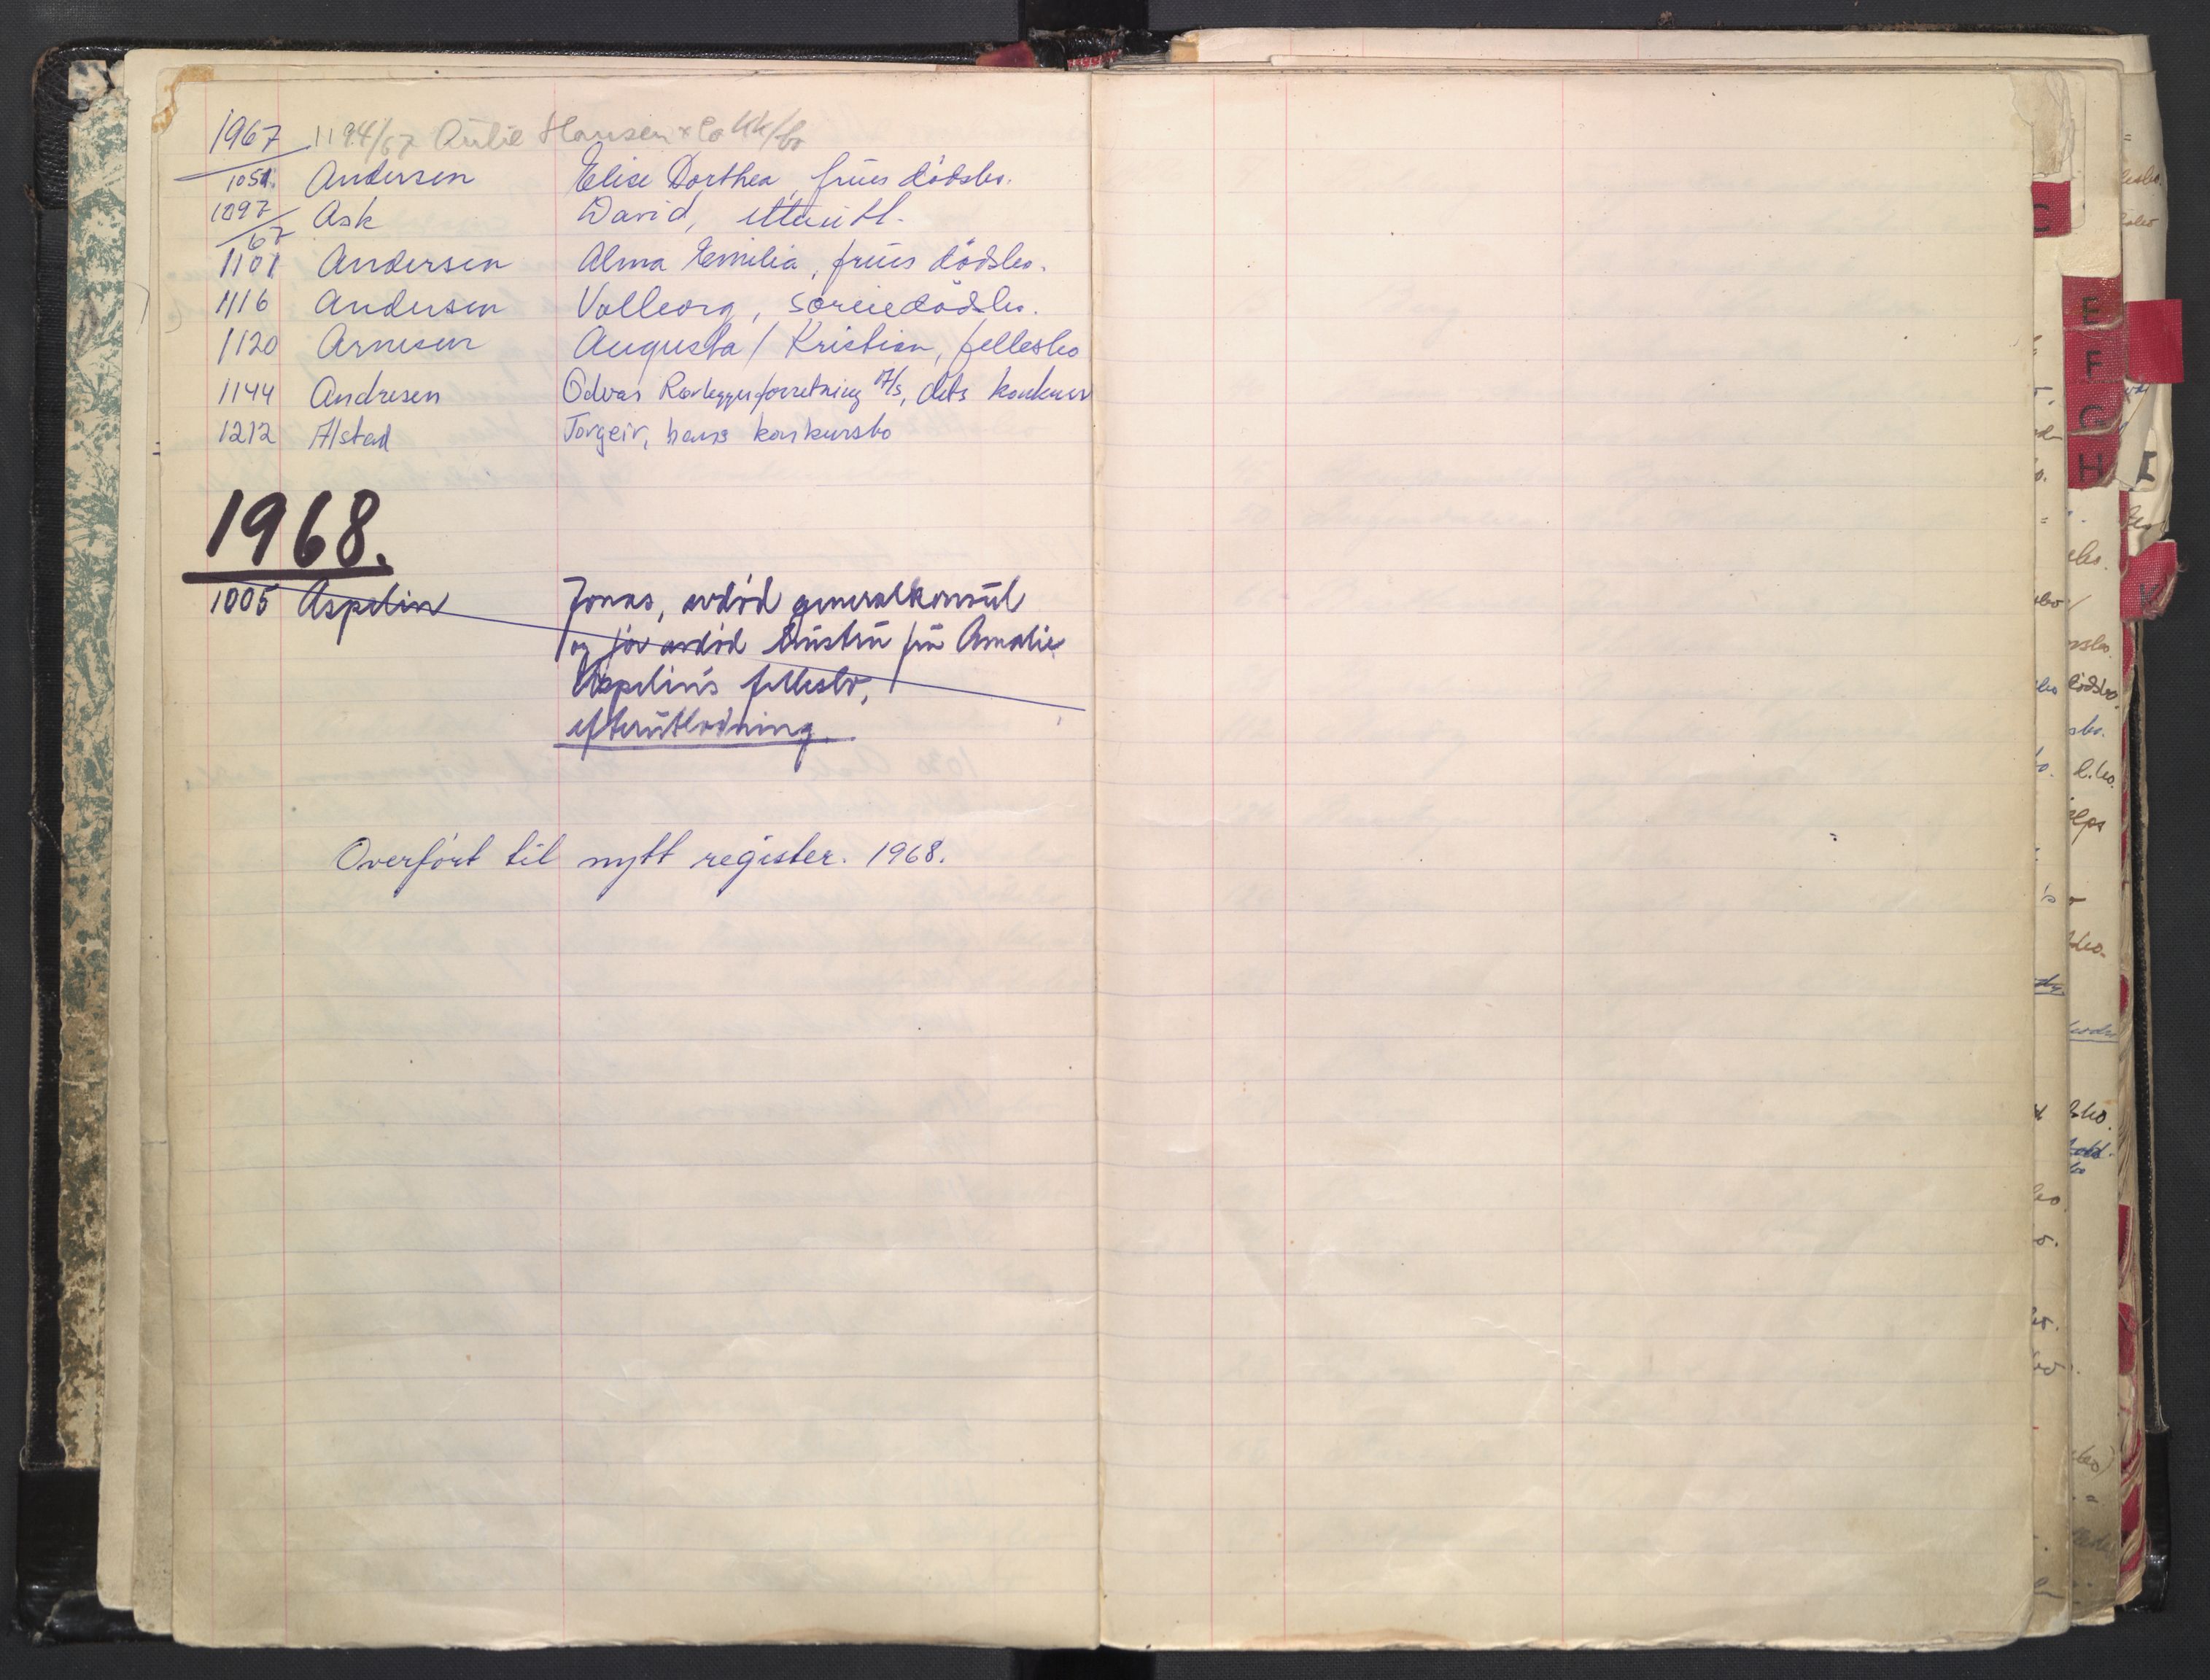 1967 1194/67 Hansen & Co
1051. Andersen Elise Dorthea, frues dødsbo.
1097/67 Ask David,
1101 Andersen Alma Emilia, frues dødsbo.
1116 Andersen Valborg,
1120 Arnesen Augusta / Kristian, fellesbo
1144 Andresen Odvar Rørleggerforretning A/s, dets konkurs
1212 Alstad Torgeir, hans konkursbo
1968.
1005 Aspelin Jonas, avdød generalkonsul
og før avdød hustru fru Amalie
Aspelin's fellesbo,
efterutlodning.
Overført til nytt register. 1968.
C
E
F
G
H
I
K